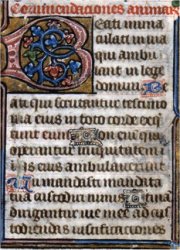 Commendaciones animar
Beati inma
culati in uia
qui ambu
lant in lege
domini Be
ati qui scrutantur testimo
nia eius in toto corde exq
runt eum Non enim qui
operantur iniquitatem
uiis eius ambulauerunt
Tu mandasti manda
tua custodiri nimis
dirigantur uie mee ad custo
diendas iustificationes